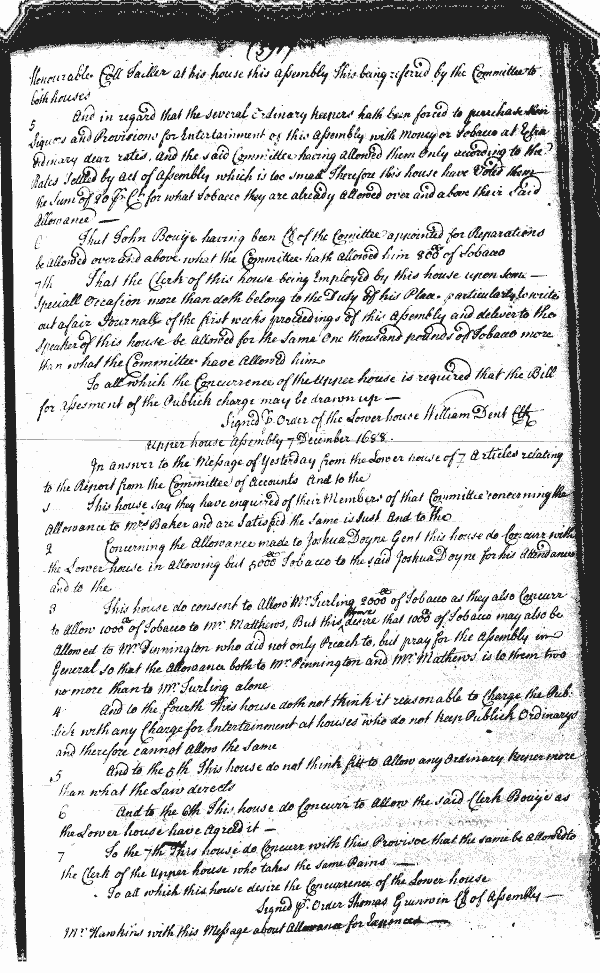 Honourable Coll Tailler at his house this Assembly This being referred by the Committee to
both houses
5 And in regard that the several Ordinary keepers hath been forced to purchase their
Liquors and Provisions for Entertainment of this Assembly with Money or Tobacco at Extra
ordinary dear rates, And the said Committee having allowed them Only according to the
Rates Settled by Act of Assembly which is too small Therefore this house have Voted them
the Sum of 20 for what Tobacco they are already allowed over and above their said
Allowance —
6 That John Bouije having been Clk of the Comittee appointed for Reparations
be allowed over and above what the Committee hath allowed him 800 of Tobacco
7th That the Clerk of this house being Employed by this house upon Some —
Speciall Occasion more than doth belong to the Duty of his Place particularly to write
out a fair Journall of the first weeks proceedings of this Assembly and deliver to the
Speaker of this house be allowed for the Same One thousand pounds of Tobacco more
than what the Committee have Allowed him
To all which the Concurrence of the Upper house is required that the Bill
for Assesment of the Publick charge may be drawn up —
Signed P Order of the Lower house William Dent Clk
Upper house Assembly 7 December 1688.
In answer to the Message of Yesterday from the Lower house of 7 Articles relating
to the Report from the Committee of Accounts And to the
1 This house say they have enquired of their Members of that Committee concerning the
Allowance to Mrs Baker and are Satisfied the Same is Just And to the
2 Concerning the Allowance made to Joshua Doyne Gent this house do Concurr with
the Lower house in Allowing but 5000 Tobacco to the said Joshua Doyne for his Attendance
and to the
3 This house do consent to Allow Mr Turling 2000 of Tobacco as they also Concurr
to Allow 1000 of Tobacco to Mr Matthews, But this house desire that 1000 of Tobacco may also be
Allowed to Mr Pinnington who did not only Preach to, but pray for the Assembly in
General so that the Allowance both to Mr Pinnington and Mr Mathews is to them two
no more than to Mr Turling alone
4 And to the fourth This house doth not think it reasonable to Charge the Pub-
lick with any Charge for Entertainment at houses who do not keep Publick Ordinarys
and therefore cannot Allow the Same
5 And to the 5th This house do not think fitt to Allow any Ordinary keeper more
than what the Law derects
6 And to the 6th This house do Concurr to Allow the said Clerk Bouije as
the Lower house have Agreed it —
7 To the 7th This house do Concurr with this Provisoe that the same be Allowed to
the Clerk of the Upper house who takes the same Pains —
To all which this house desire the Concurrence of the Lower house
Signed P Order Thomas Grunwin Clk of Assembly —
Mr Hawkins with this Message about Allowance for Expences —